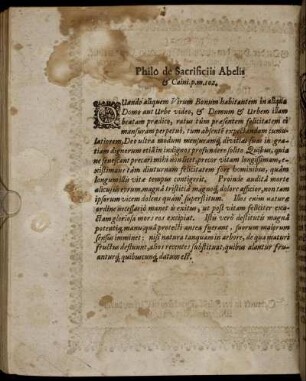 Philo de Sacrificiis Abelis
& Caini. p. m. 102.
QUando aliquem Virum Bonum habitantem in aliqua
Domo aut Urbe video, & Domum & Urbem illam
beatam prædico, ratus tùm præsentem felicitatem ei
mansuram perpetuò, tum absentis expectandam cumu-
latiorem: Deo ultra modum mensuramq; divitias suas in gra-
tiam dignorum etiam in indignos profundere solito. Quibus, quia
ne senescant precari mihi libet, precor vitam longissimam, ex-
istimans tam diuturnam felicitatem fore hominibus, quàm
longinquâ his vita tempus contigerit. Proinde auditâ morte
alicujus eorum magnâ tristitiâ magnoq; dolore afficior, non tam
ipsorum vicem dolens quàm superstitum. Illos enim naturæ
ordine necessariò manet is exitus, ut post vitam feliciter ex-
actam gloriosa mors eos excipiat. Isti verò destituti magnâ
potentiq; manu, quâ protecti antea fuerant, suorum malorum
sensus imminet; nisi natura tanquam in arbore, de qua maturi
fructus defluunt, alios recentes substituat, quibus alantur fru-
anturq; quibuscunq; datum est.